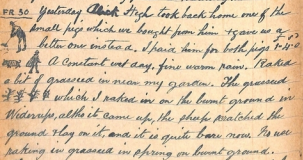 FR 30. Yesterday Hugh took back home one of the
small pigs which we bought from him & gave us a
better one instead. I paid him for both pigs
A constant wet day, fine warm rain. Raked
a bit of grasseed in near my garden. The grasseed
which I raked in on the burnt ground in
Widerups, altho it came up, the sheep scratched the
ground. Hay on it, and it is quite bare now. No use
raking in grasseed in spring on burnt ground.